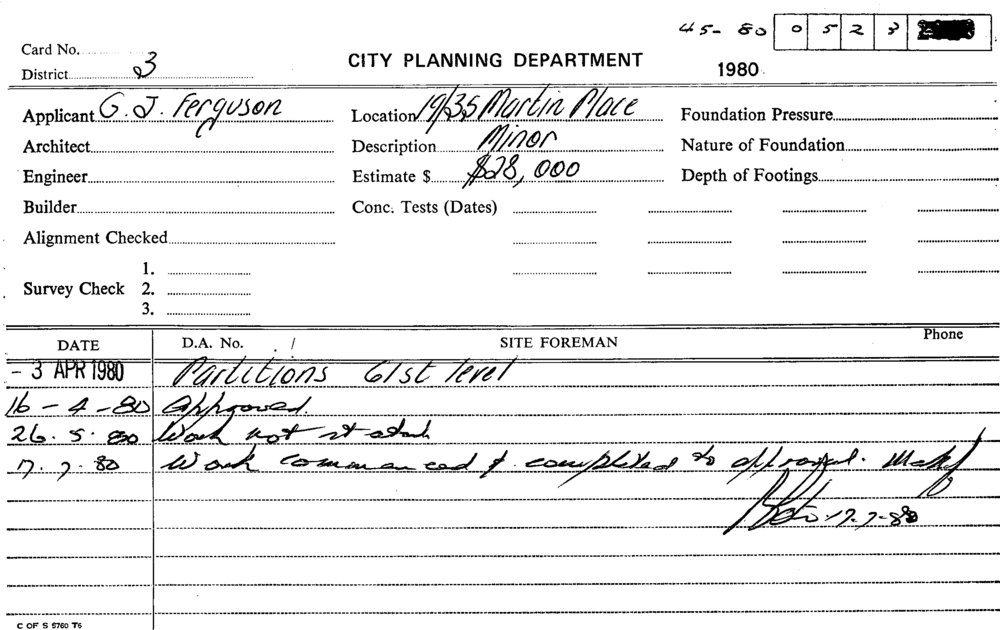 45-80 0 5 2 3
Card No.
District 3
CITY PLANNING DEPARTMENT
1980
Applicant G. J. Ferguson
Location 19/35 Martin Place
Foundation Pressure
Architect
Description Minor
Nature of Foundation
Engineer
Estimate $ $28,000
Depth of Footings
Builder
Conc. Tests (Dates)
Alignment Checked
Survey Check 1.
2.
3.
DATE D.A. No. / SITE FOREMAN Phone
- 3 APR 1980 Partitions 61st level
16-4-80 Approved.
26.5.80 Work not started
7.7.80 Work commenced & completed to approval.
17.7.80
C OF S 5760 T6